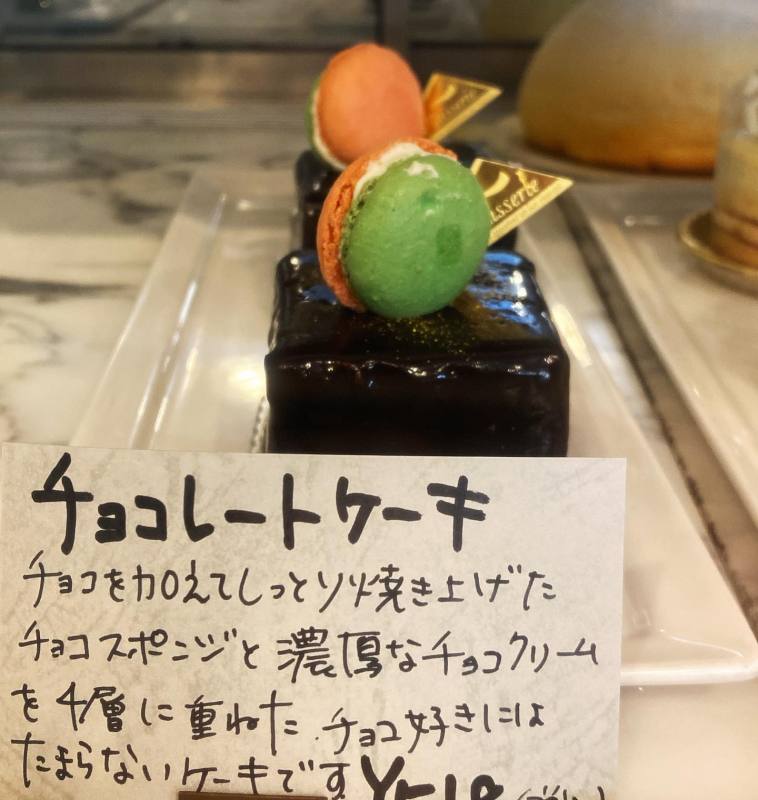 asserie
チョコレートケーキ
チョコを加えてしっとり焼き上げた
チョコスポンジと濃厚なチョコクリーム
を4層に重ねた.チョコ好きには
たまらないケーキです